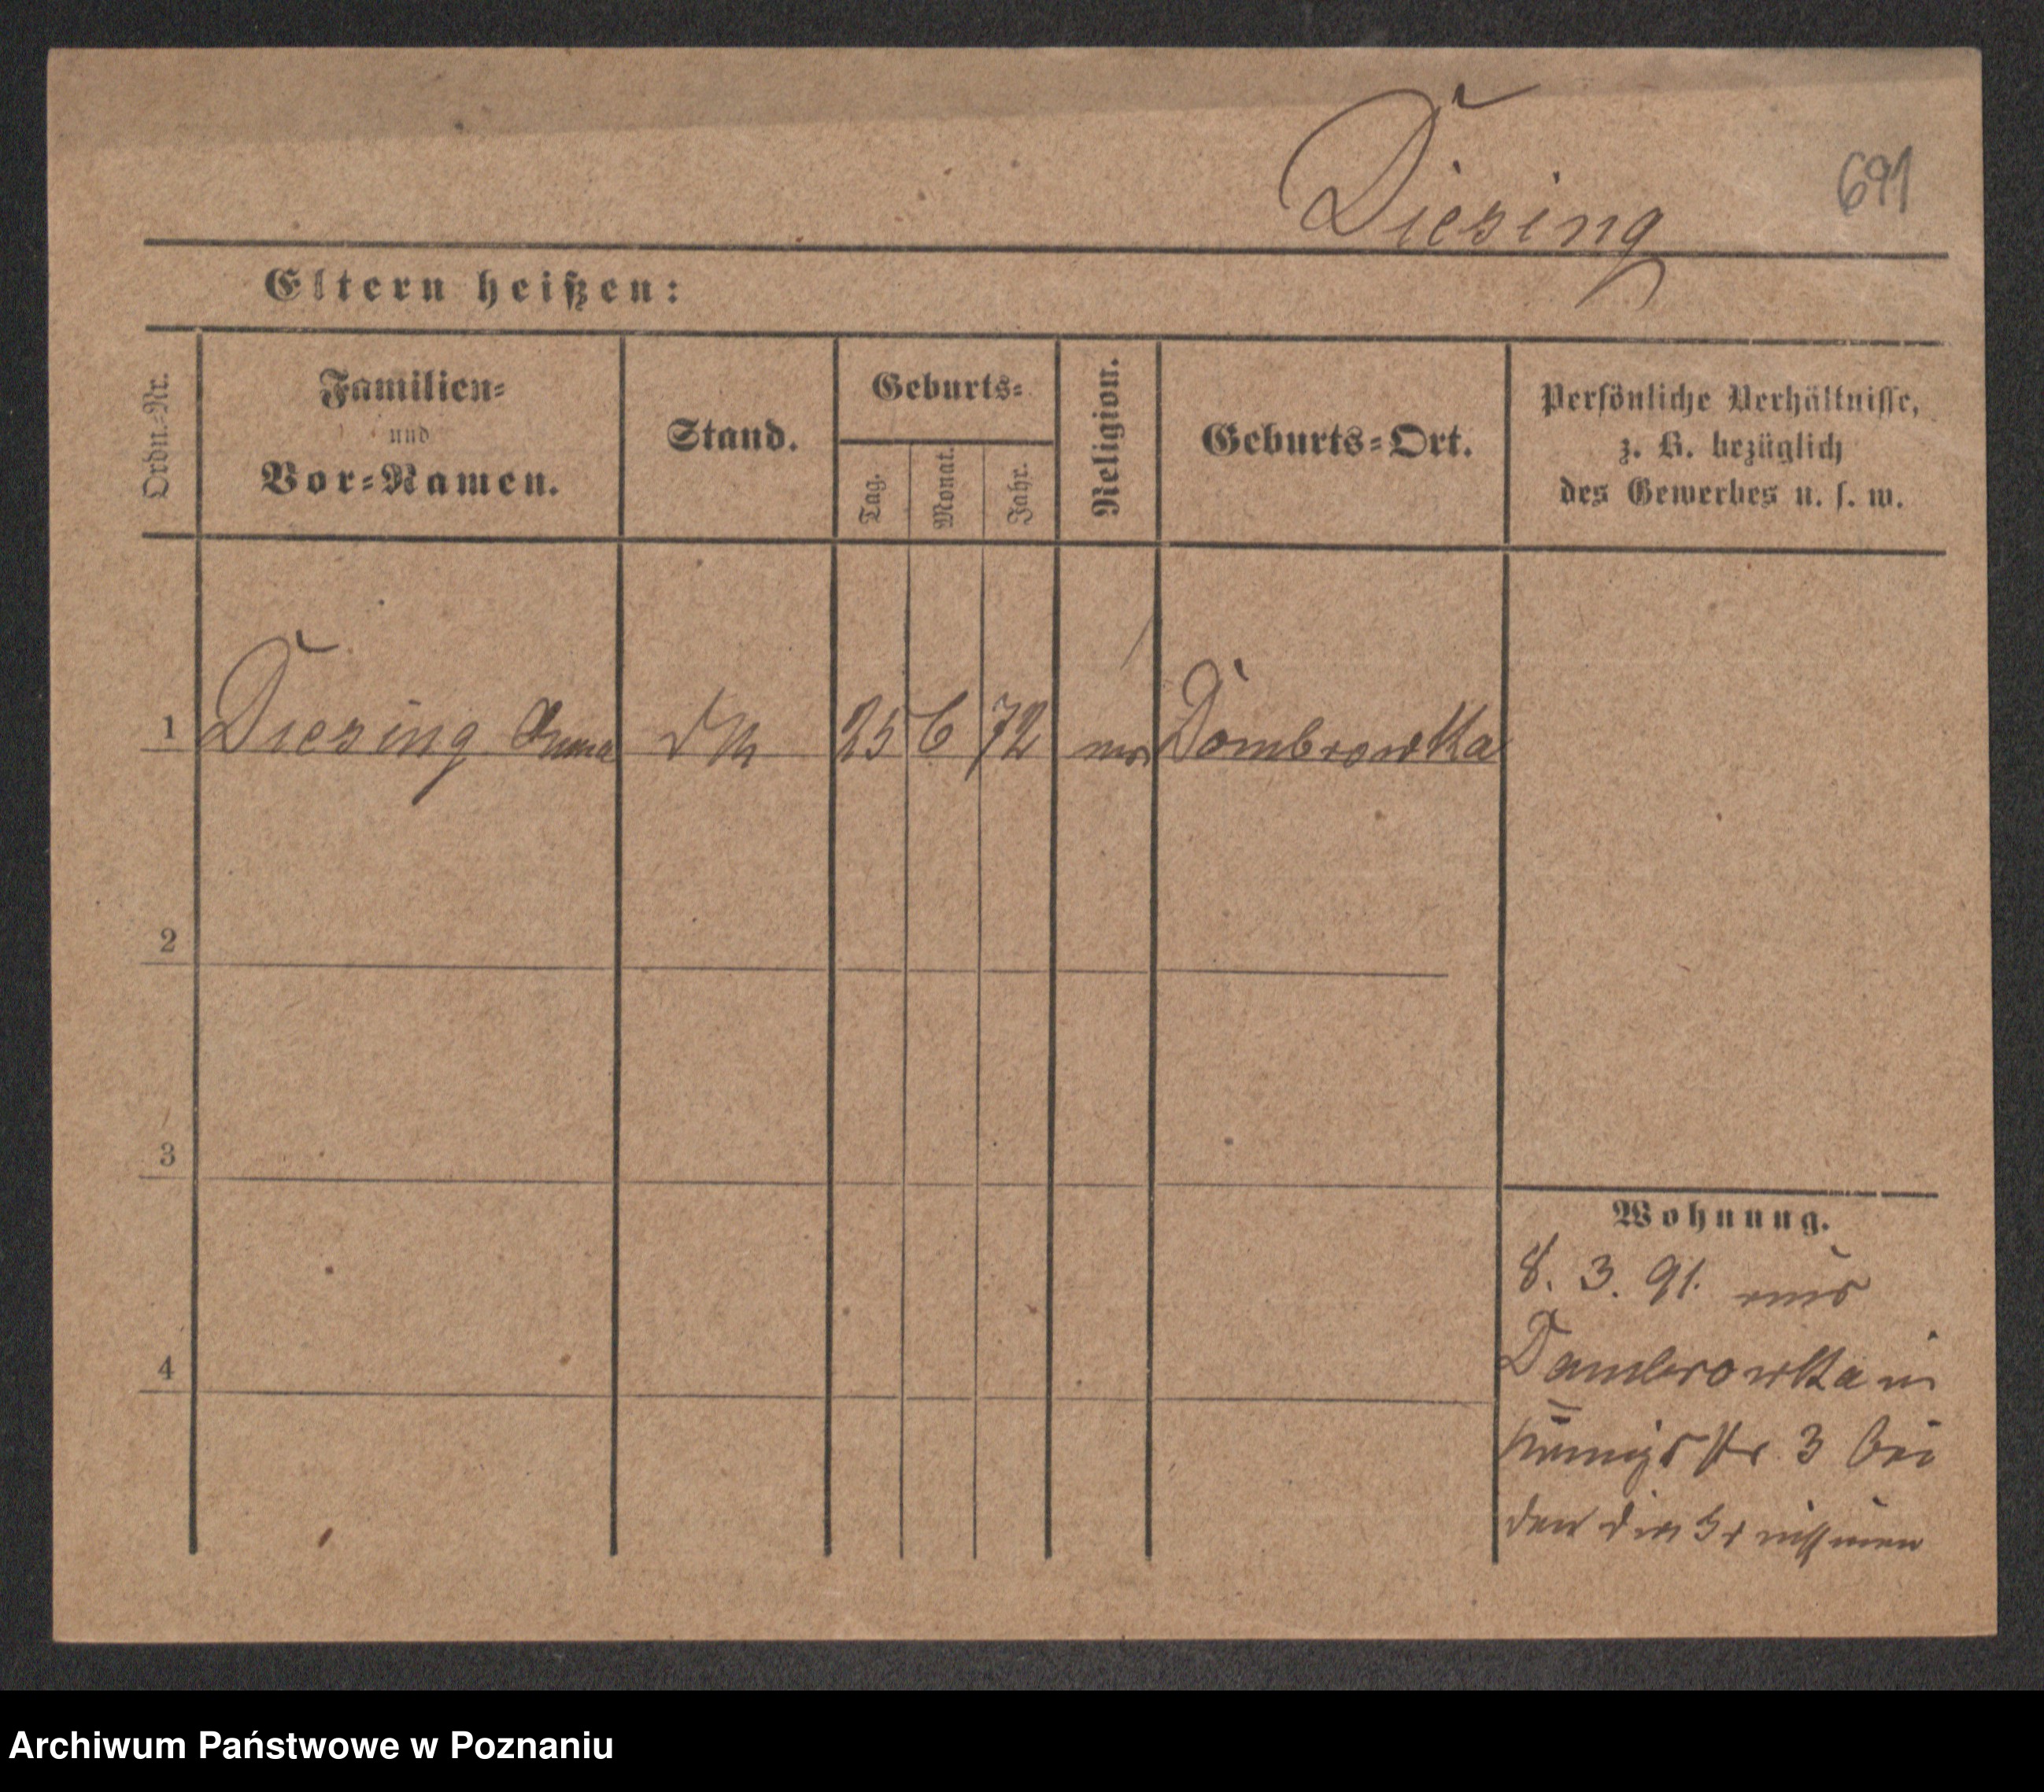 Diesing
691
Eltern heißen:
Ordn.-Nr.
Familien-
und
Vor-Namen.
Stand.
Geburts-
Tag.
Monat.
Jahr.
Religion.
Geburts-Ort.
Persönliche Verhältnisse,
z. B. bezüglich
des Gewerbes u. s. w.
1 Diesing Anna 25 6 72 Dombrowka
2
3
4
Wohnung.
8. 3. 91. aus
Dambrowka in
3 bei
Archiwum Państwowe w Poznaniu